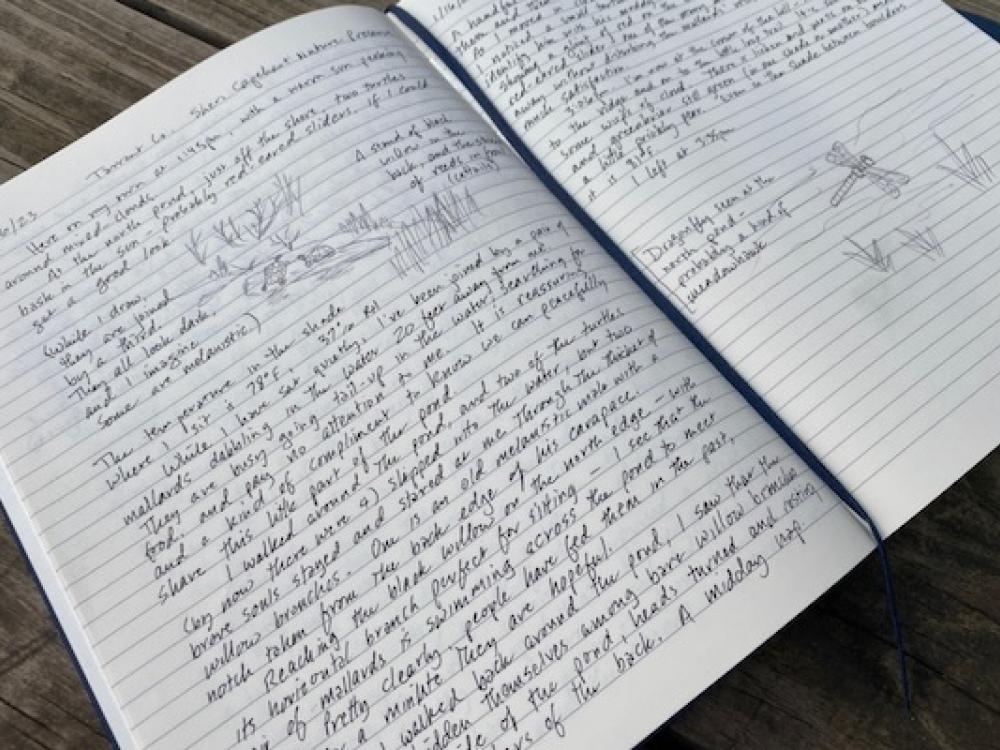 6/23 Tarrant Co., Sheri Capehart Nature Preserve
Here on my own at 1:45pm, with a warm sun peeking
around mixed clouds.
At the north pond, just off the shore, two turtles
bask in the sun - probably red-eared sliders. If I could
get a good look
A stand of black
willow in the
back, and the
of reeds in
(cattails)
(While I draw,
they are joined
by a third.
They all look dark,
and I imagine
some are melanistic)
The temperature in the shade
where I sit is 78°F, 37% RH
While I have sat quietly, I've been joined by a pair of
mallards dabbling in the water 20 feet away from me.
They are busy going tail-up in the water, searching for
food, and pay no attention to me. It is reassuring
and a kind of compliment to know we can peacefully
share this little part of the pond.
I walked around the pond, and two of the turtles
(by now there were 4) slipped into the water, but two
brave souls stayed and stared at me through the thicket of
willow branches. One is an old melanistic male with a
notch taken from the back edge of his carapace.
Reaching the black willow on the north edge - with
its horizontal branch perfect for sitting - I see that the
pair of mallards is swimming across the pond to meet
Pretty clearly people have fed them in the past,
for a minute they are hopeful.
I walked back around the pond, I saw that the
hidden themselves among bare willow branches
side of the pond, heads turned and resting
feathers of the back. A midday nap.
A handful
As I moved
I noticed a small
identify him with his
shaped
red-eared slider, one of the
away without disturbing the mallards.
much satisfaction
3:10pm - I'm now at the crown of the hill
to the edge and on to the little lost trail. It is
some wisps of cloud. There's lichen and moss on
and greenbrier still green (in one shady
a little prickly pear
it is 81°F in the shade between boulders
I left at 3:35pm
Dragonfly seen at the
north pond -
probably a kind of
meadowhawk